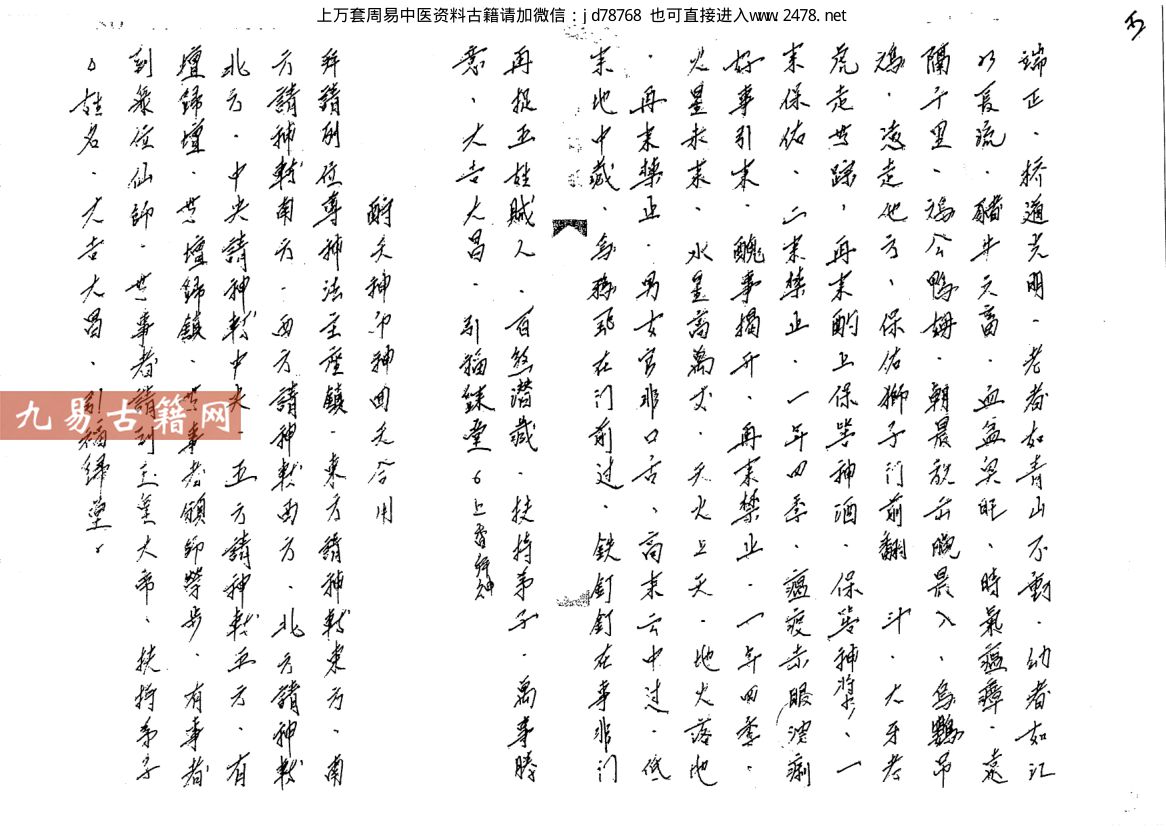 上万套周易中医资料古籍请加微信：jd78768 也可直接进入www.2478.net
端正、桥道光明、老者如青山不動、幼者如江
水長流、豬牛六畜、血盆興旺、時氣瘟瘴、遠
隔千里、鴉公鴨姆、朝晨放出晚晨入、鳥鸚吊
走他方、保佑獅子門前翻 斗、大牙老
虎走無踪、再来酌上保举神酒、保举神將、一
来保佑、二来禁止、一年四季、瘟疫赤眼波痢
好事引来、醜事揭开、再来禁止、一年四季、
火星水星、水星高萬丈、天火上天、地火落地
、再来禁止、男女官非口舌、高来云中过、低
来地中藏、烏鴉飛在门前过、铁釘釘在事非门
再捉五姓賊人、百煞潜藏、扶持弟子、萬事勝
意、大吉大昌、引福歸堂6上香
酧天神
拜請列位尊神法主座鎮、東方請神轉東方、南
方請神轉南方、西方請神轉西方、北方請神轉
北方、中央請神轉中央、五方請神轉五方、有
壇歸壇、無壇歸鎮、無事者領師榮步、有事者
到衆位仙師、無事者請到玉皇大帝、扶持弟子
△姓名、大吉大昌、引福歸堂、
九易古籍网